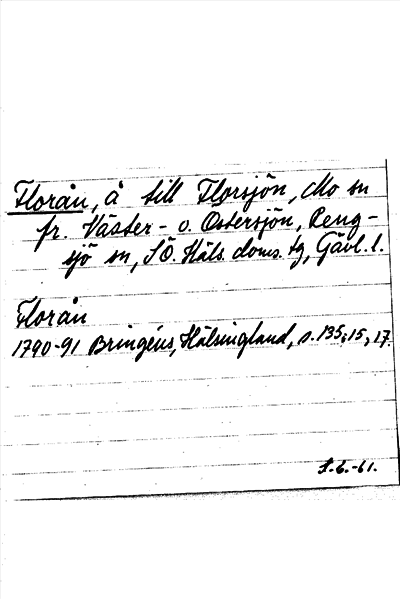 Florån, å till Florsjön, Mo sn
fr. Väster- o. Östersjön, Reng-
sjö sn, SÖ. Häls. doms. tg, Gävl. l.
Florån
1790-91 Bringéus, Hälsingland, s. 135, 15, 17.
1.6.-61.